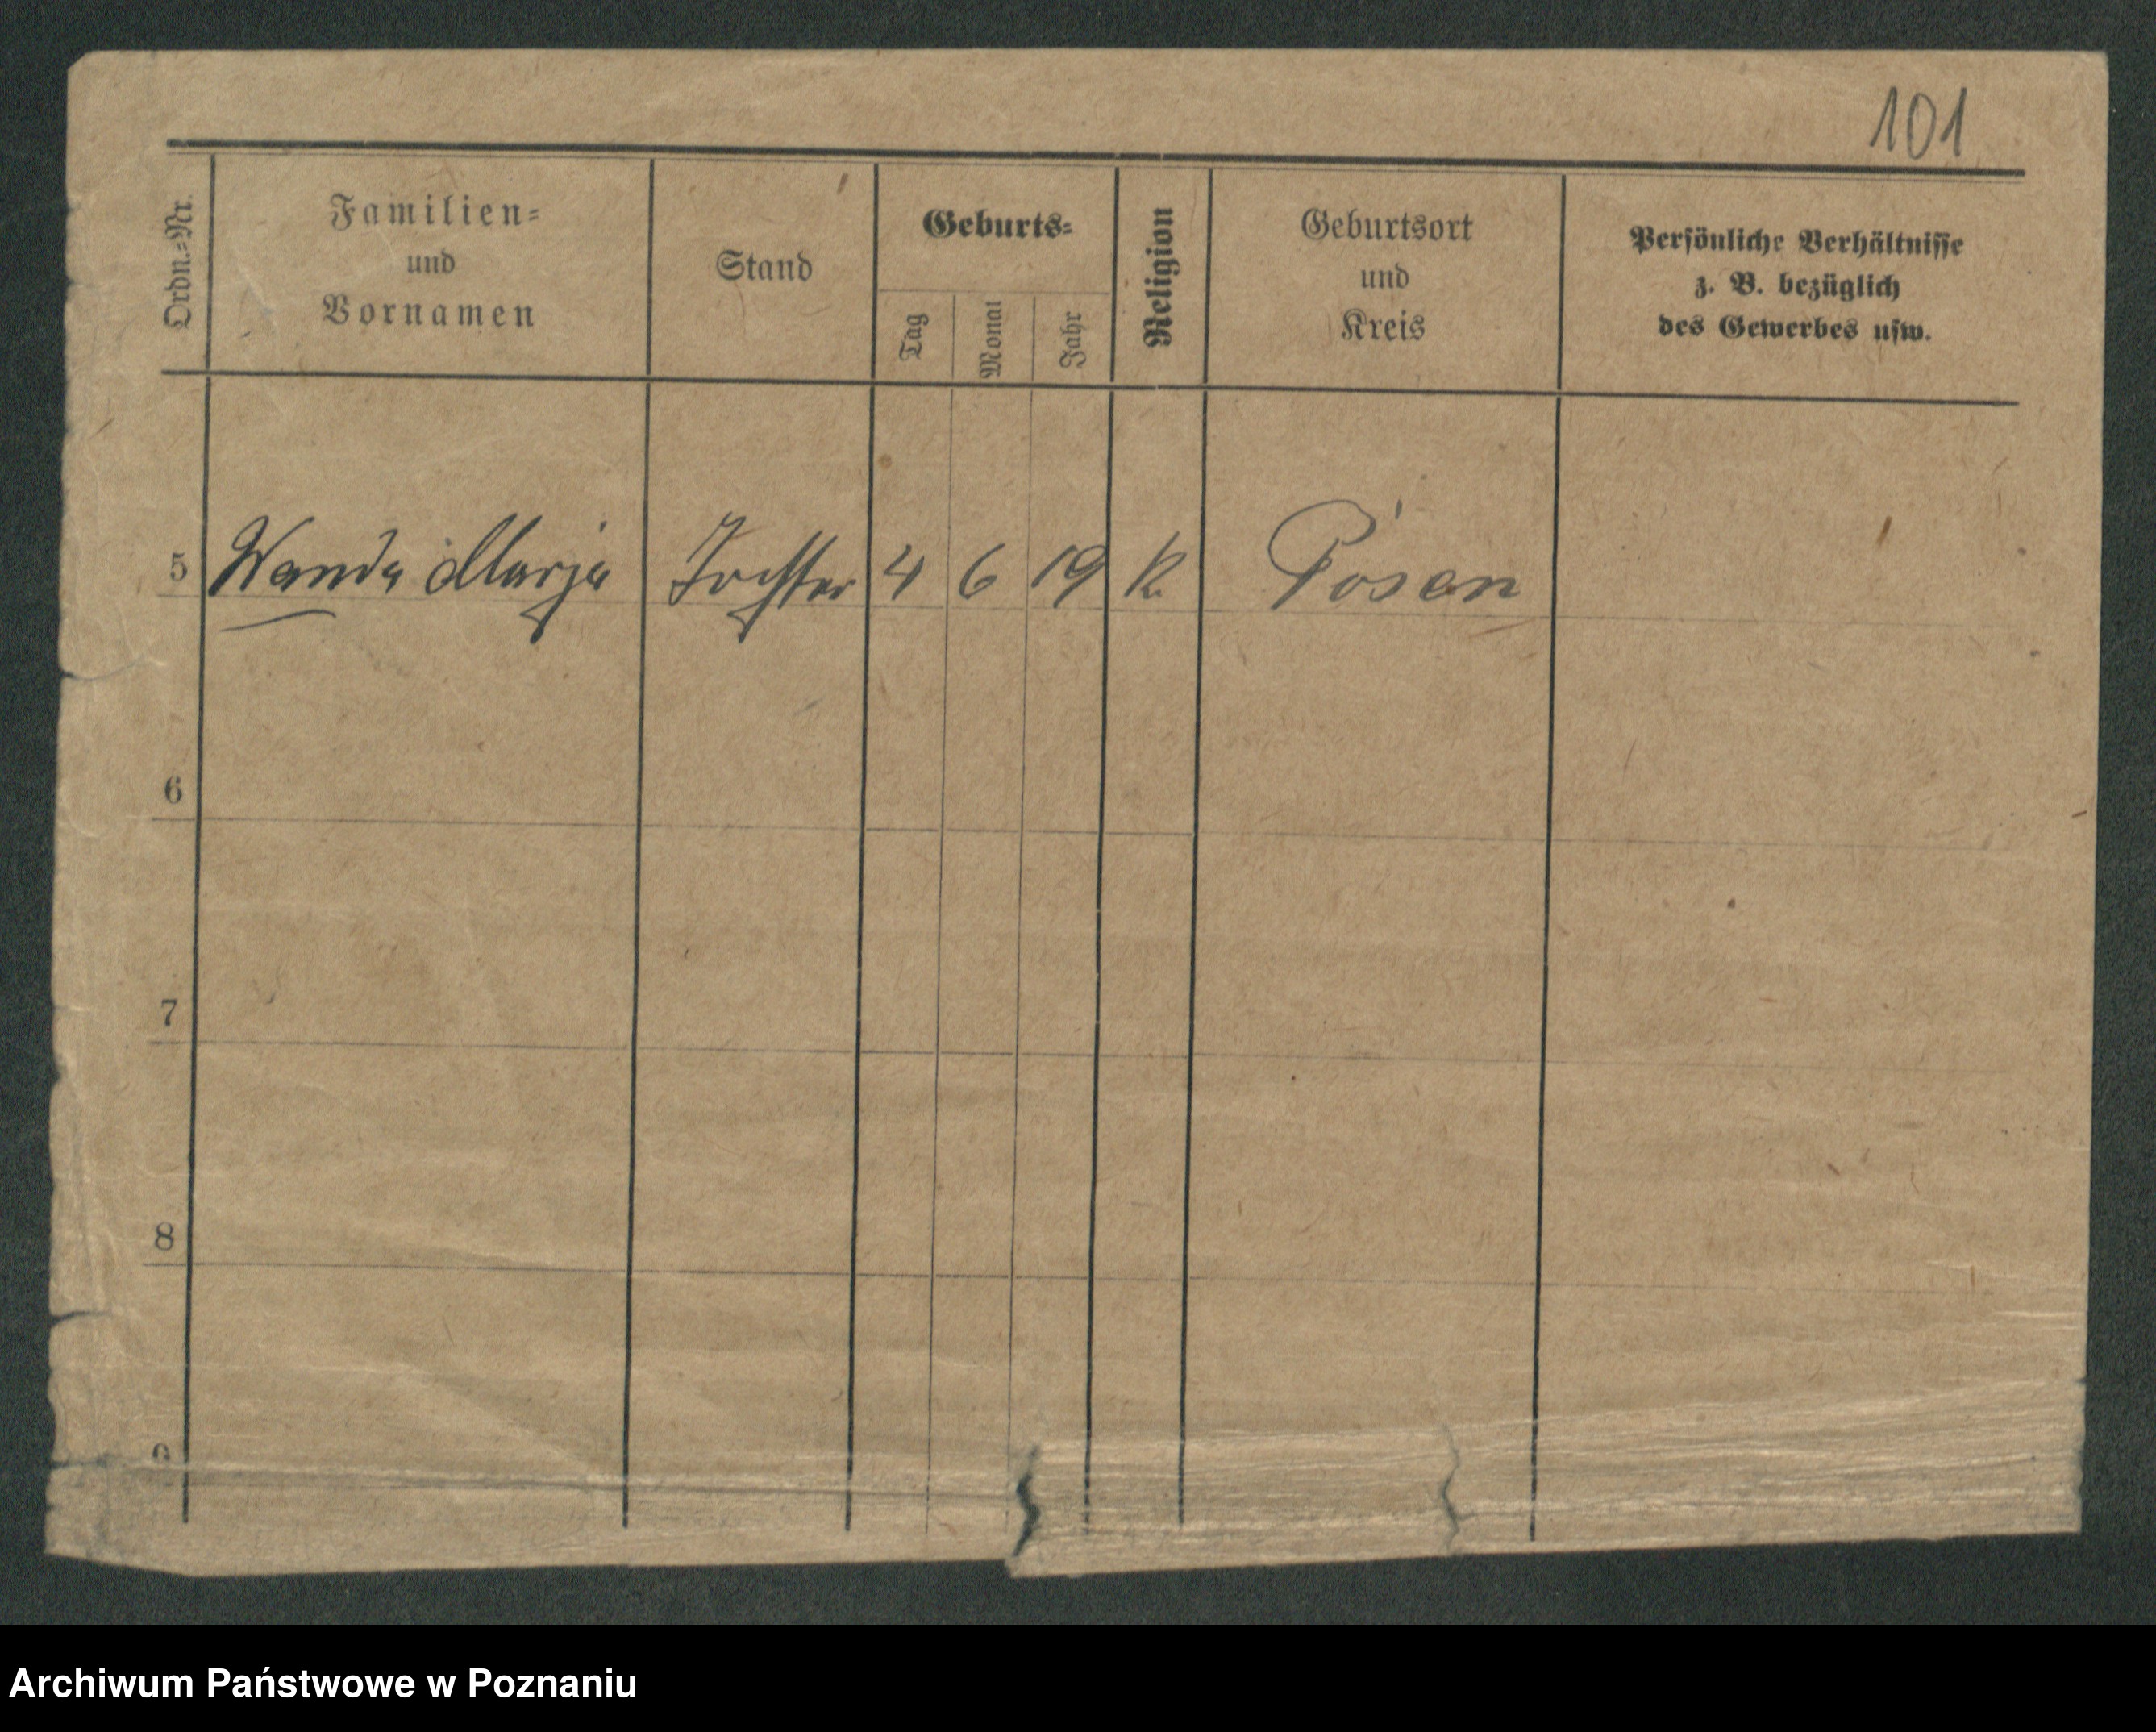 101
Ordn.=Nr.
Familien=
und
Vornamen
Stand
Geburts=
Tag
Monat
Jahr
Religion
Geburtsort
und
Kreis
Persönliche Verhältnisse
z. B. bezüglich
des Gewerbes usw.
5 Wanda Marja Tochter 4 6 19 K. Posen
6
7
8
9
Archiwum Państwowe w Poznaniu